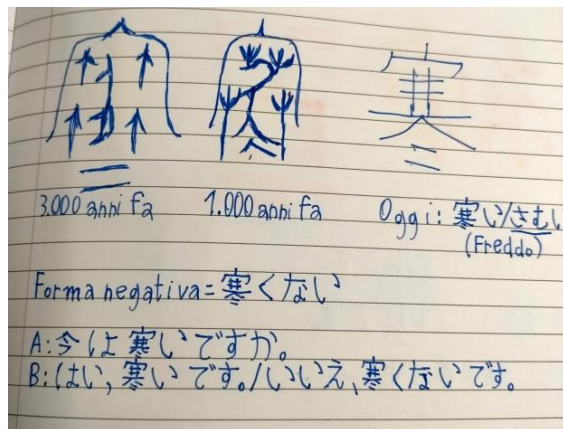 寒
3.000 anni fa 1.000 anni fa Oggi: 寒い/さむい
(Freddo)
Forma negativa=寒くない
A:今は寒いですか。
B:はい,寒いです。/いいえ、寒くないです。